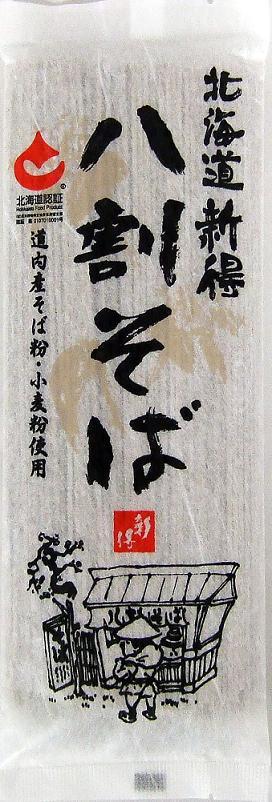 北海道 新得
八割そば
北海道認証
Hokkaido Food Product
道内産そば粉・小麦粉使用
新得
そば